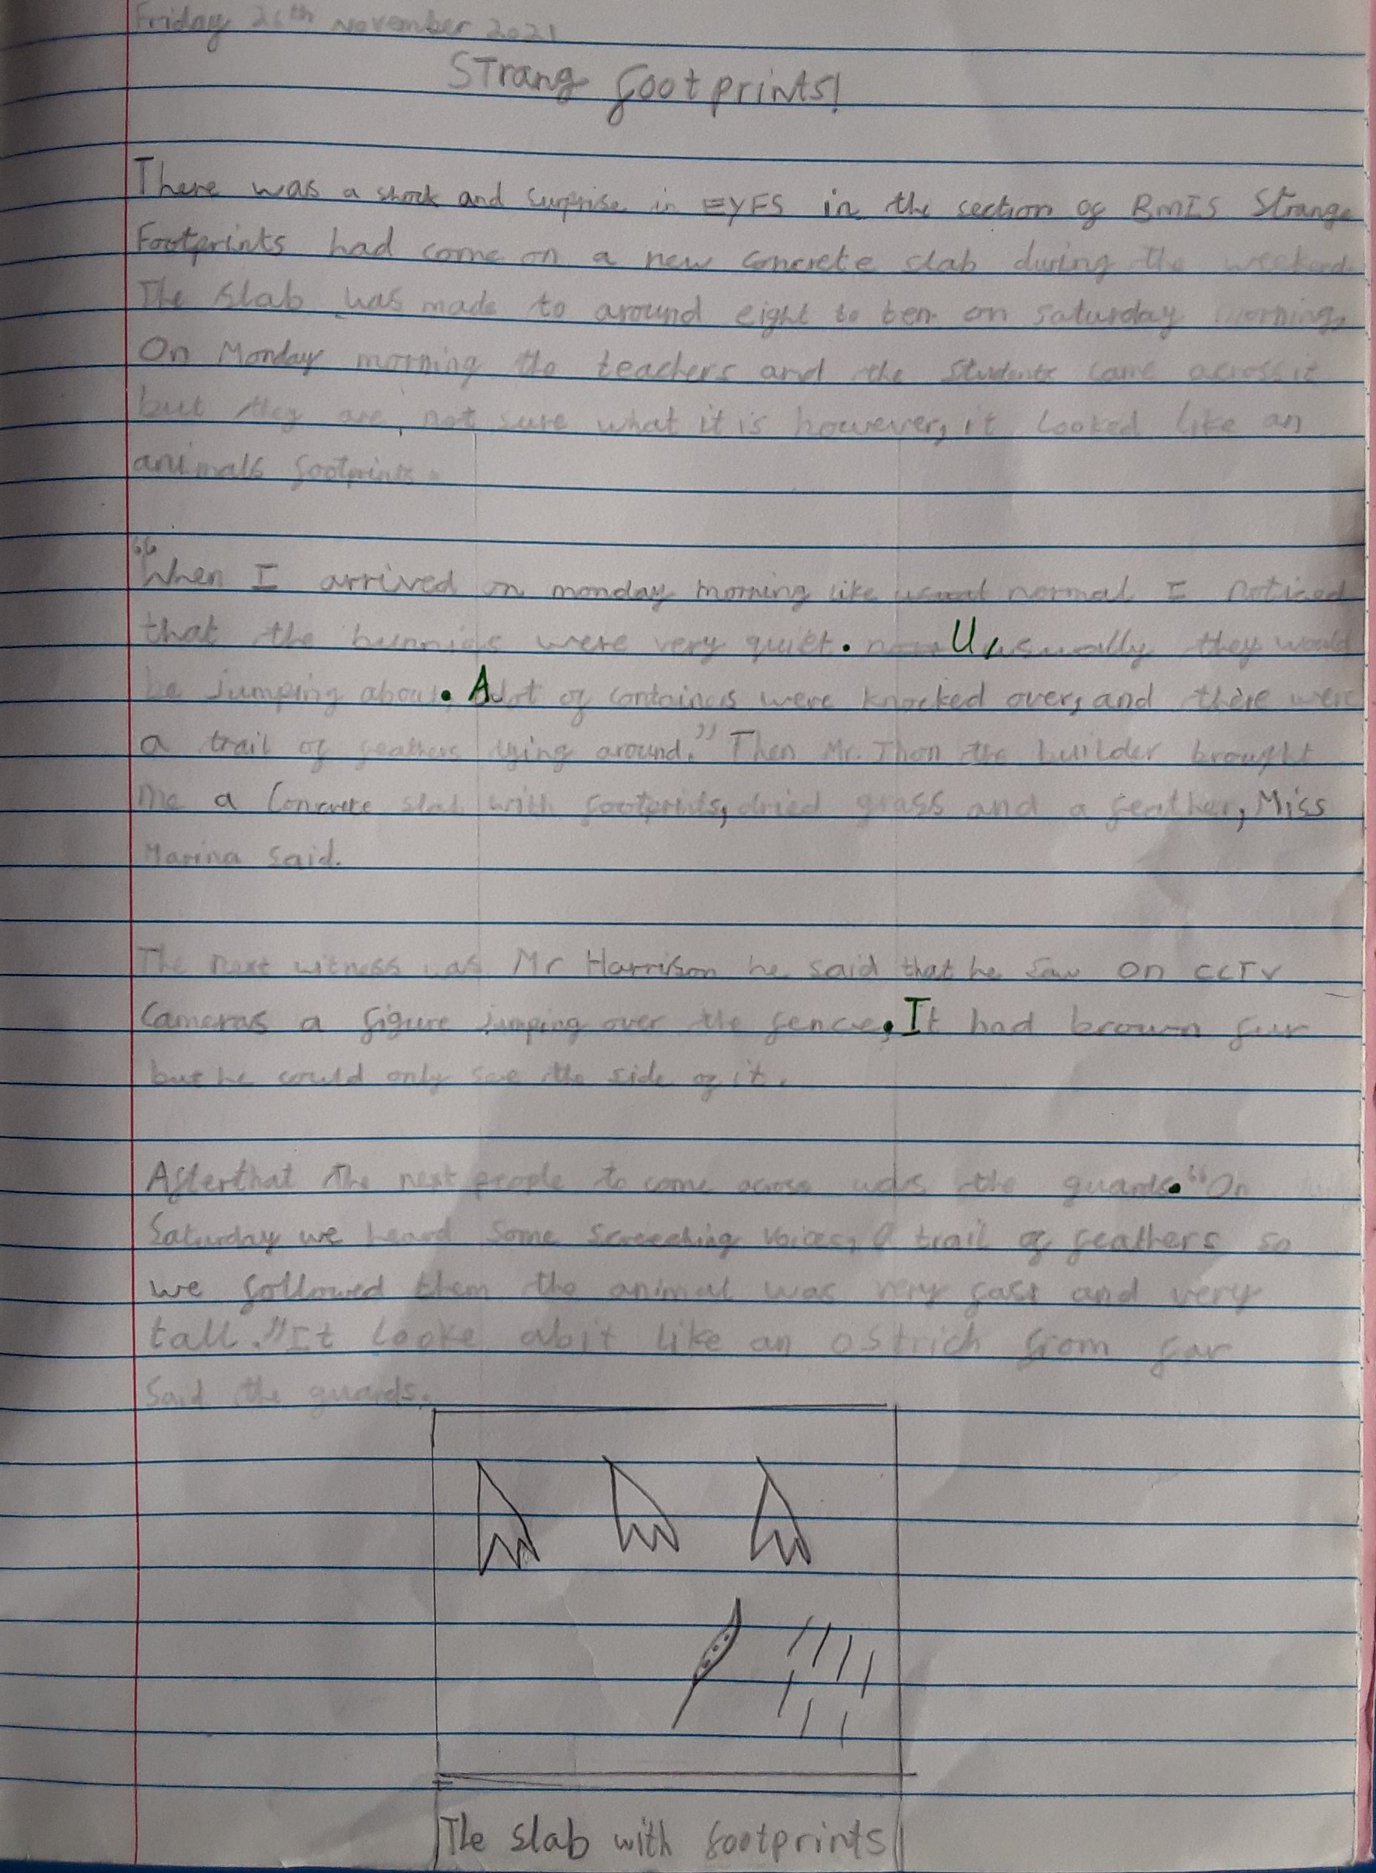 Friday 26th November 2021
Strang footprints!
There was a shock and surprise in EYFS in the section of BMIS Strange
Footprints had come on a new concrete slab during the weekend.
The slab was made to around eight to ten on saturday morning.
On Monday morning the teachers and the students came across it
but they are not sure what it is however, it looked like an
animals footprints.
"When I arrived on monday morning like usual normal I noticed
that the bunnies were very quiet. Usually they would
be jumping about. A lot of containers were knocked over, and there were
a trail of feathers lying around." Then Mr. Jhon the builder brought
me a Concrete slab with footprints, dried grass and a feather, Miss
Marina said.
The next witness was Mr Harrison he said that he saw on CCTV
Cameras a figure jumping over the fence. It had brown fur
but he could only see the side of it.
After that The next people to come across was the guards. "On
Saturday we heard some screeching voices, a trail of feathers so
we followed them the animal was very fast and very
tall." It looke abit like an ostrich from far
Said the guards.
The slab with footprints